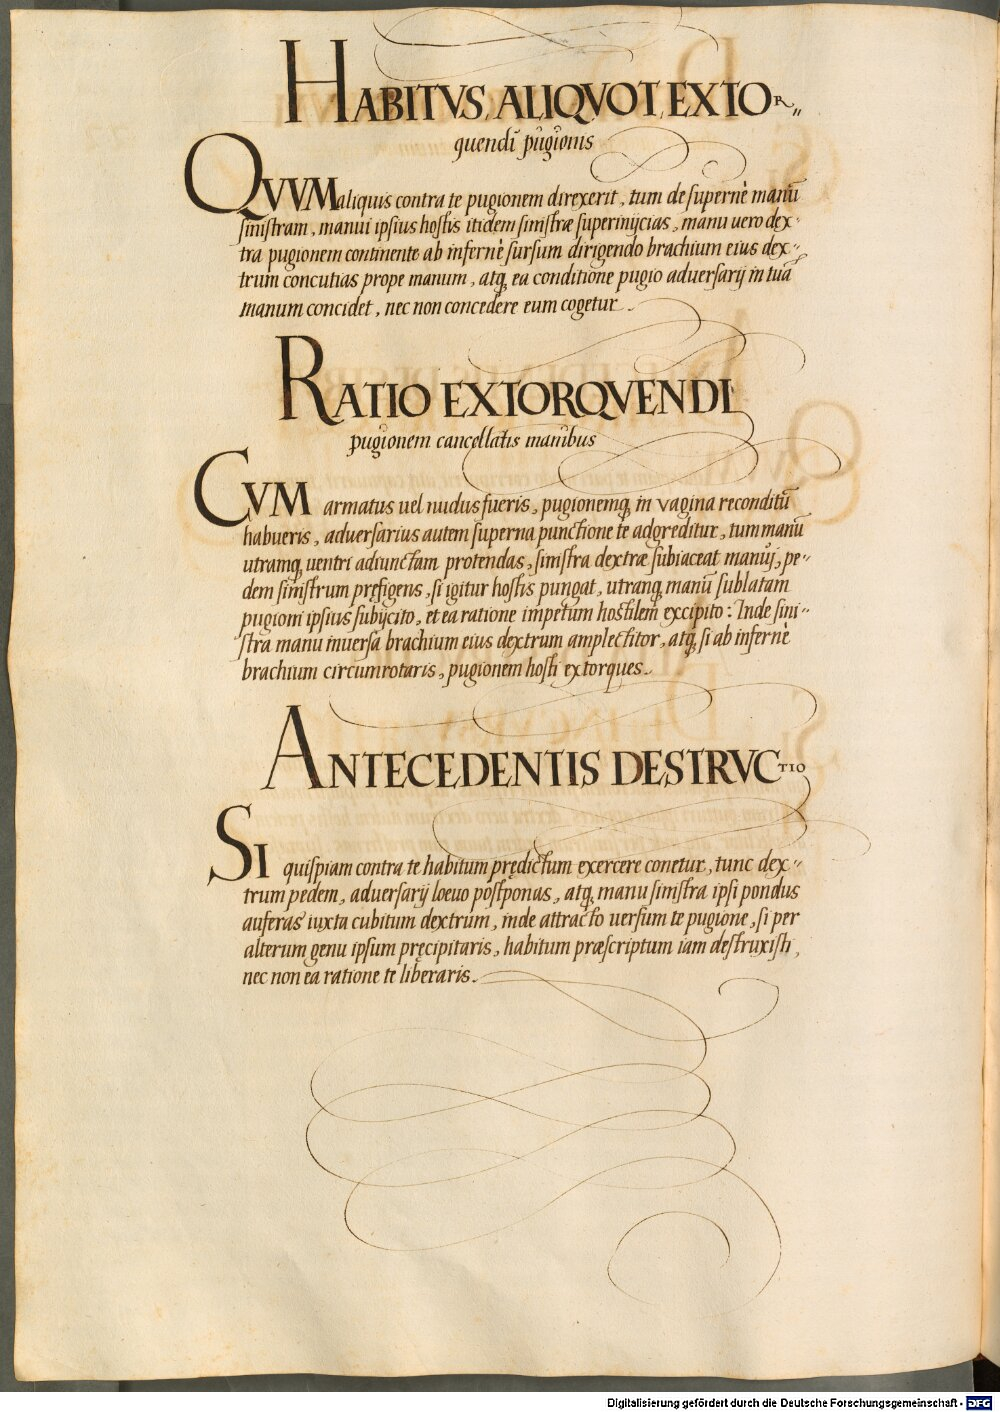 HABITVS, ALIQVOT, EXTOR„
quendi pugionis
QVVM aliquis contra te pugionem direxerit, tum de supernè manū
sinistram, manui ipsius hostis itidem sinistræ superinijcias, manu uero dex-
tra pugionem continente ab infernè sursum dirigendo brachium eius dex-
trum concutias prope manum, atq, ea conditione pugio aduersarij in tuā
manum concidet, nec non concedere eum cogetur.
RATIO EXTORQVENDI
pugionem cancellatis manibus
CVM armatus uel nudus fueris, pugionemq, in vagina reconditū
habueris, aduersarius autem superna punctione te adgreditur, tum manū
utramq, uentri adiunctam protendas, sinistra dextræ subiaceat manuj, pe-
dem sinistrum pręfigens, si igitur hostis pungat, utranq, manū sublatam
pugioni ipsius subijcito, et ea ratione impetum hostilem excipito: Inde sini-
stra manu inuersa brachium eius dextrum amplectitor, atq, si ab infernè
brachium circumrotaris, pugionem hosti extorques.
ANTECEDENTIS DESTRVCTIO
SI quispiam contra te habitum prędictum exercere conetur, tunc dex-
trum pedem, aduersarij loeuo postponas, atq, manu sinistra ipsi pondus
auferas iuxta cubitum dextrum, inde attracto uersum te pugione, si per
alterum genu ipsum pręcipitaris, habitum præscriptum iam destruxisti,
nec non ea ratione te liberaris.
Digitalisierung gefördert durch die Deutsche Forschungsgemeinschaft - DFG